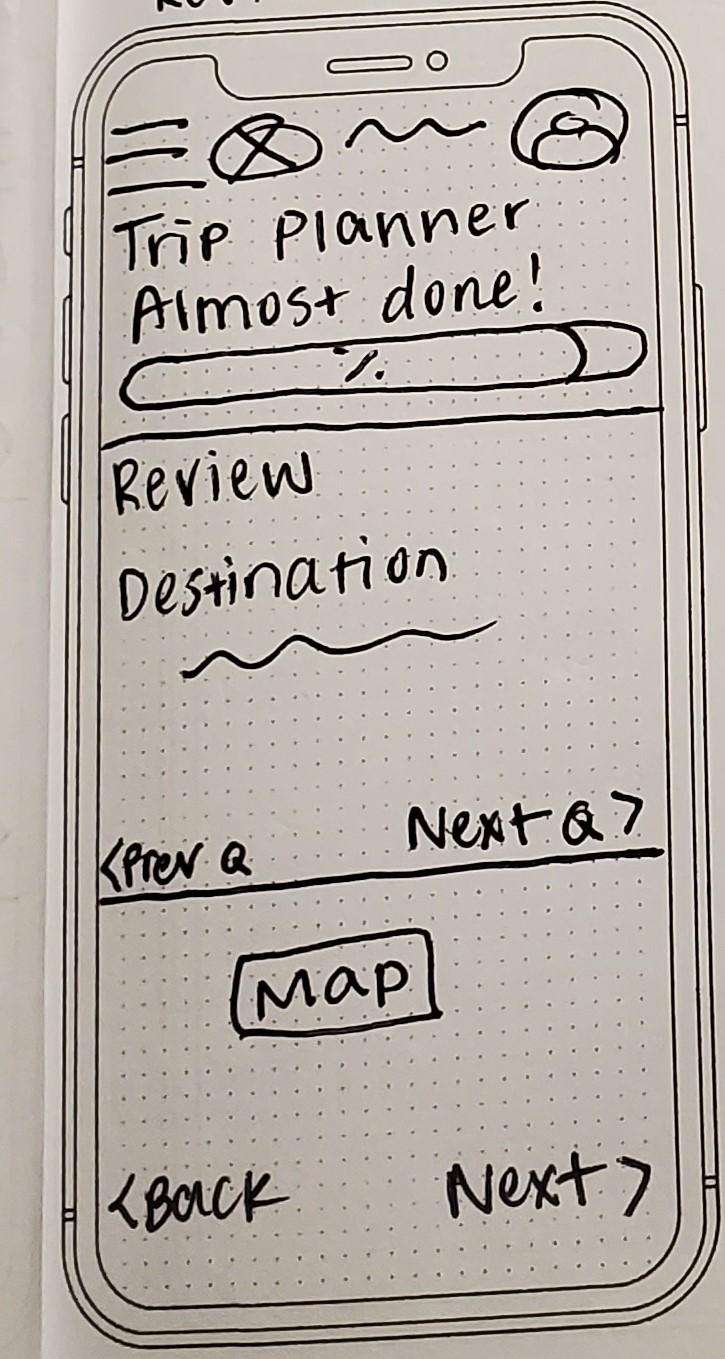 Trip Planner
Almost done!
%
Review
Destination
<Prev Q
Next Q >
Map
<Back
Next >